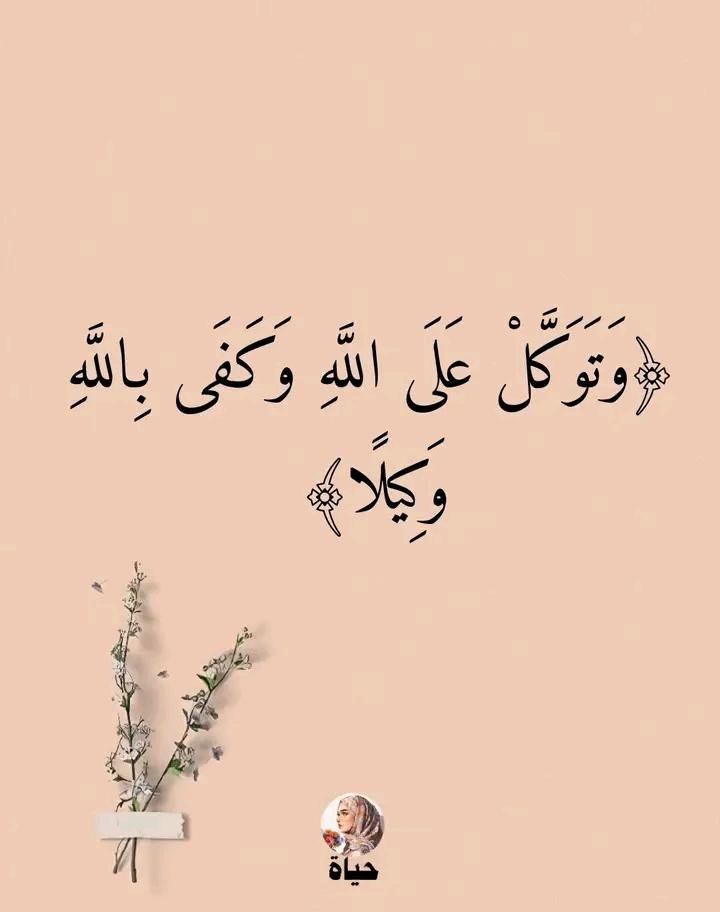 ﴿وَتَوَكَّلْ عَلَى اللَّهِ وَكَفَى بِاللَّهِ
وَكِيلًا﴾
حياة